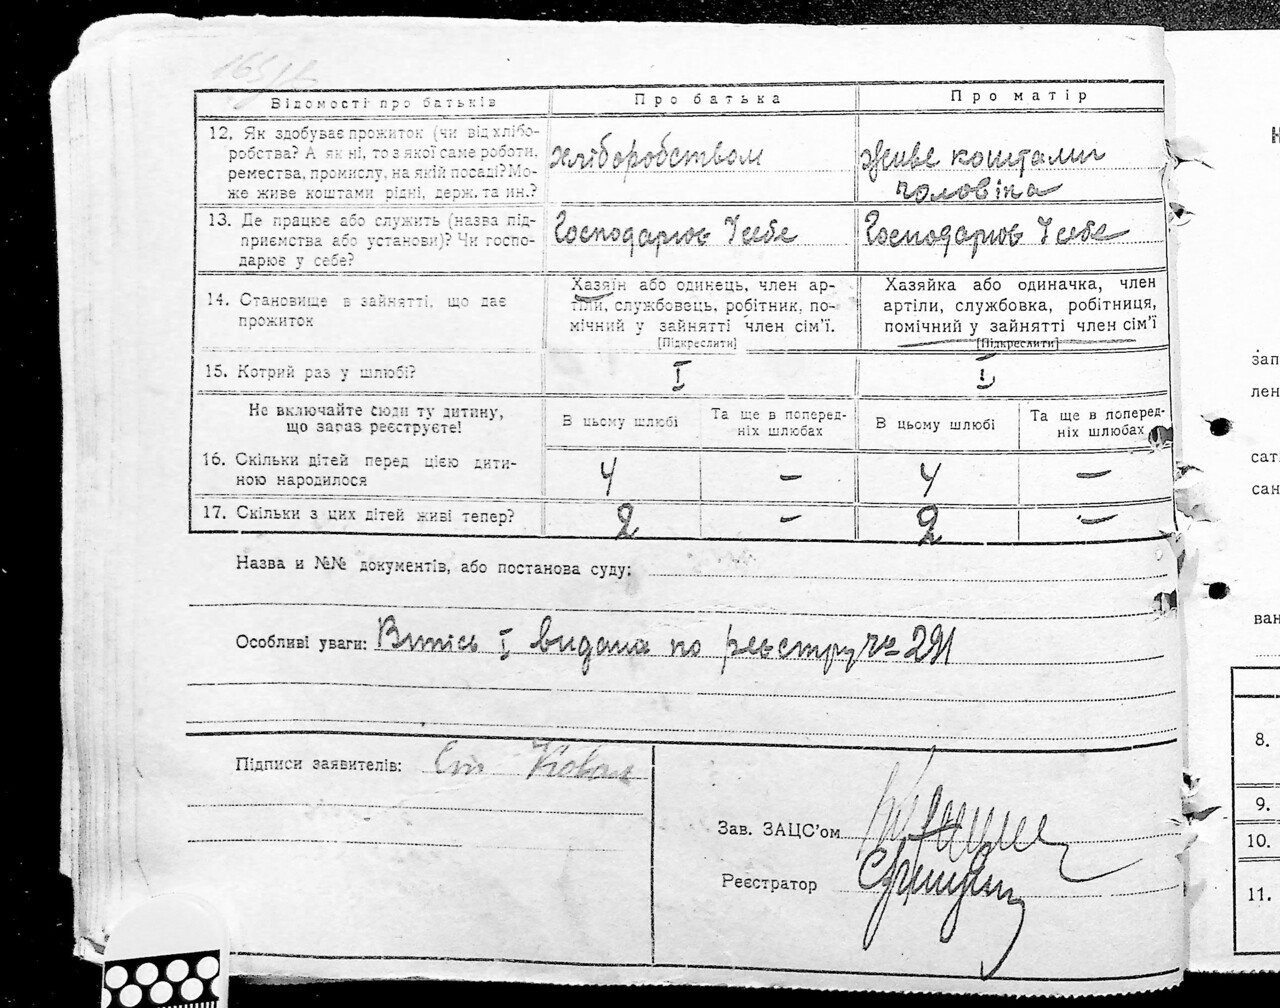 165/2
Відомості про батьків Про батька Про матір
12. Як здобуває прожиток (чи від хлібо-
робства? А як ні, то з якої саме роботи,
ремества, промислу, на якій посаді? Мо-
же живе коштами рідні, держ. та ин.?
хліборобством
живе коштами
чоловіка
13. Де працює або служить (назва під-
приємства або установи)? Чи госпо-
дарює у себе?
Господарює Усебе
Господарює Усебе
14. Становище в зайнятті, що дає
прожиток
Хазяїн або одинець, член ар-
тіли, службовець, робітник, по-
мічний у зайнятті член сім'ї.
[Підкреслити]
Хазяйка або одиначка, член
артіли, службовка, робітниця,
помічний у зайнятті член сім'ї
[Підкреслити]
15. Котрий раз у шлюбі? I I
Не включайте сюди ту дитину,
що зараз реєструєте!
В цьому шлюбі
Та ще в поперед-
ніх шлюбах
В цьому шлюбі
Та ще в поперед-
ніх шлюбах
16. Скільки дітей перед цією дити-
ною народилося
4 – 4 –
17. Скільки з цих дітей живі тепер? 2 – 2 –
Назва и №№ документів, або постанова суду:
Особливі уваги: Витсь I видана по реєстру № 291
Підписи заявителів: Коваль
Зав. ЗАЦС'ом
Реєстратор
зап
лен
сат
сан
ван
8.
9.
10.
11.